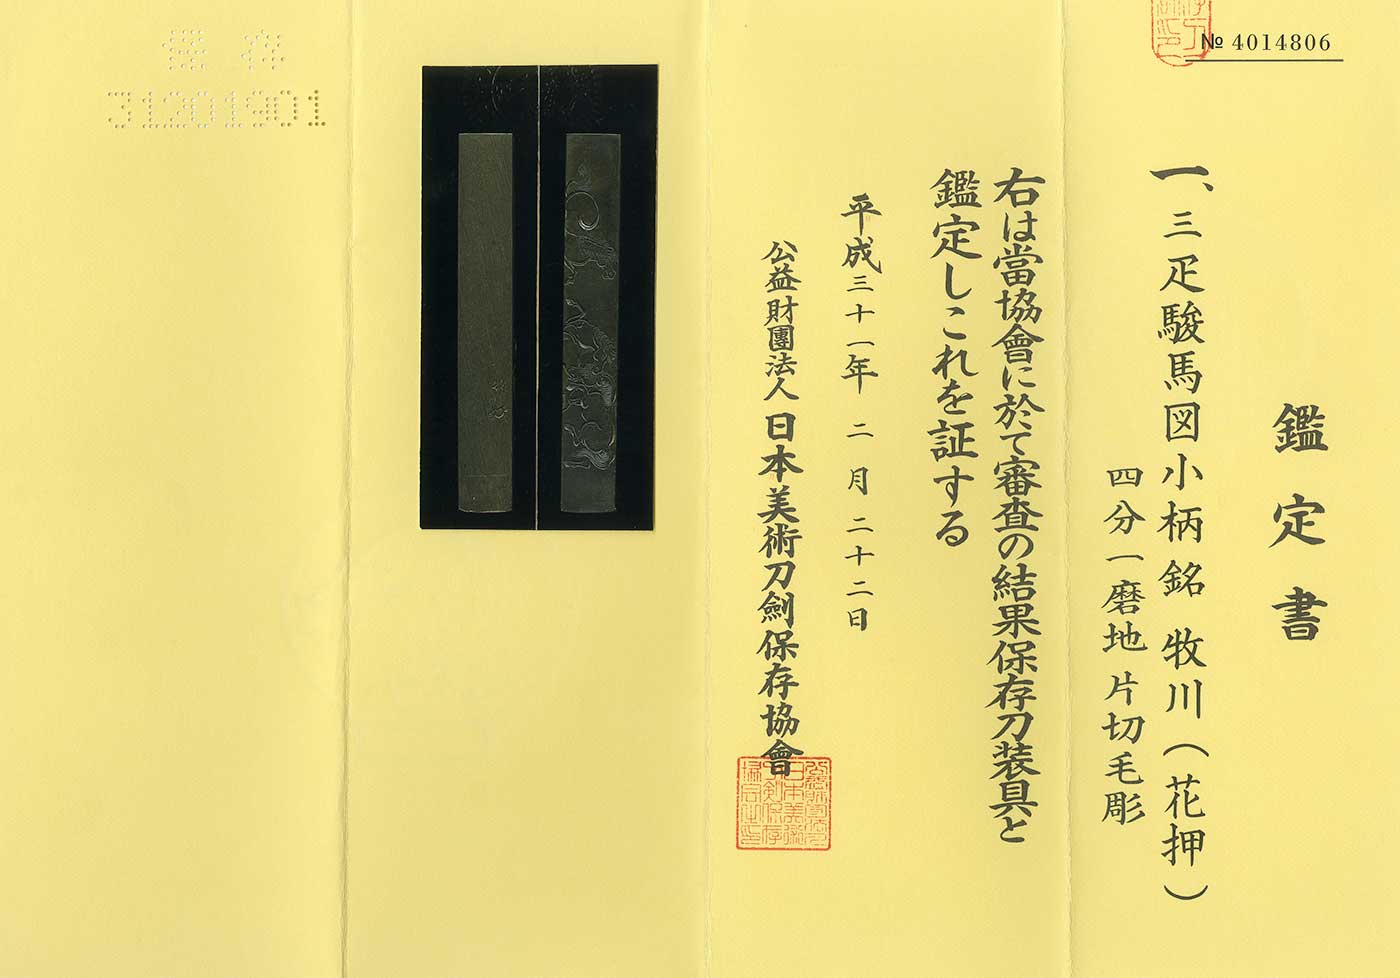 № 4014806
鑑定書
一、三疋駿馬図小柄銘 牧川（花押）
四分一磨地 片切毛彫
右は當協會に於て審査の結果保存刀装具と
鑑定しこれを証する
平成三十一年 二月 二十二日
公益財團法人 日本美術刀劍保存協會
保存
31201901